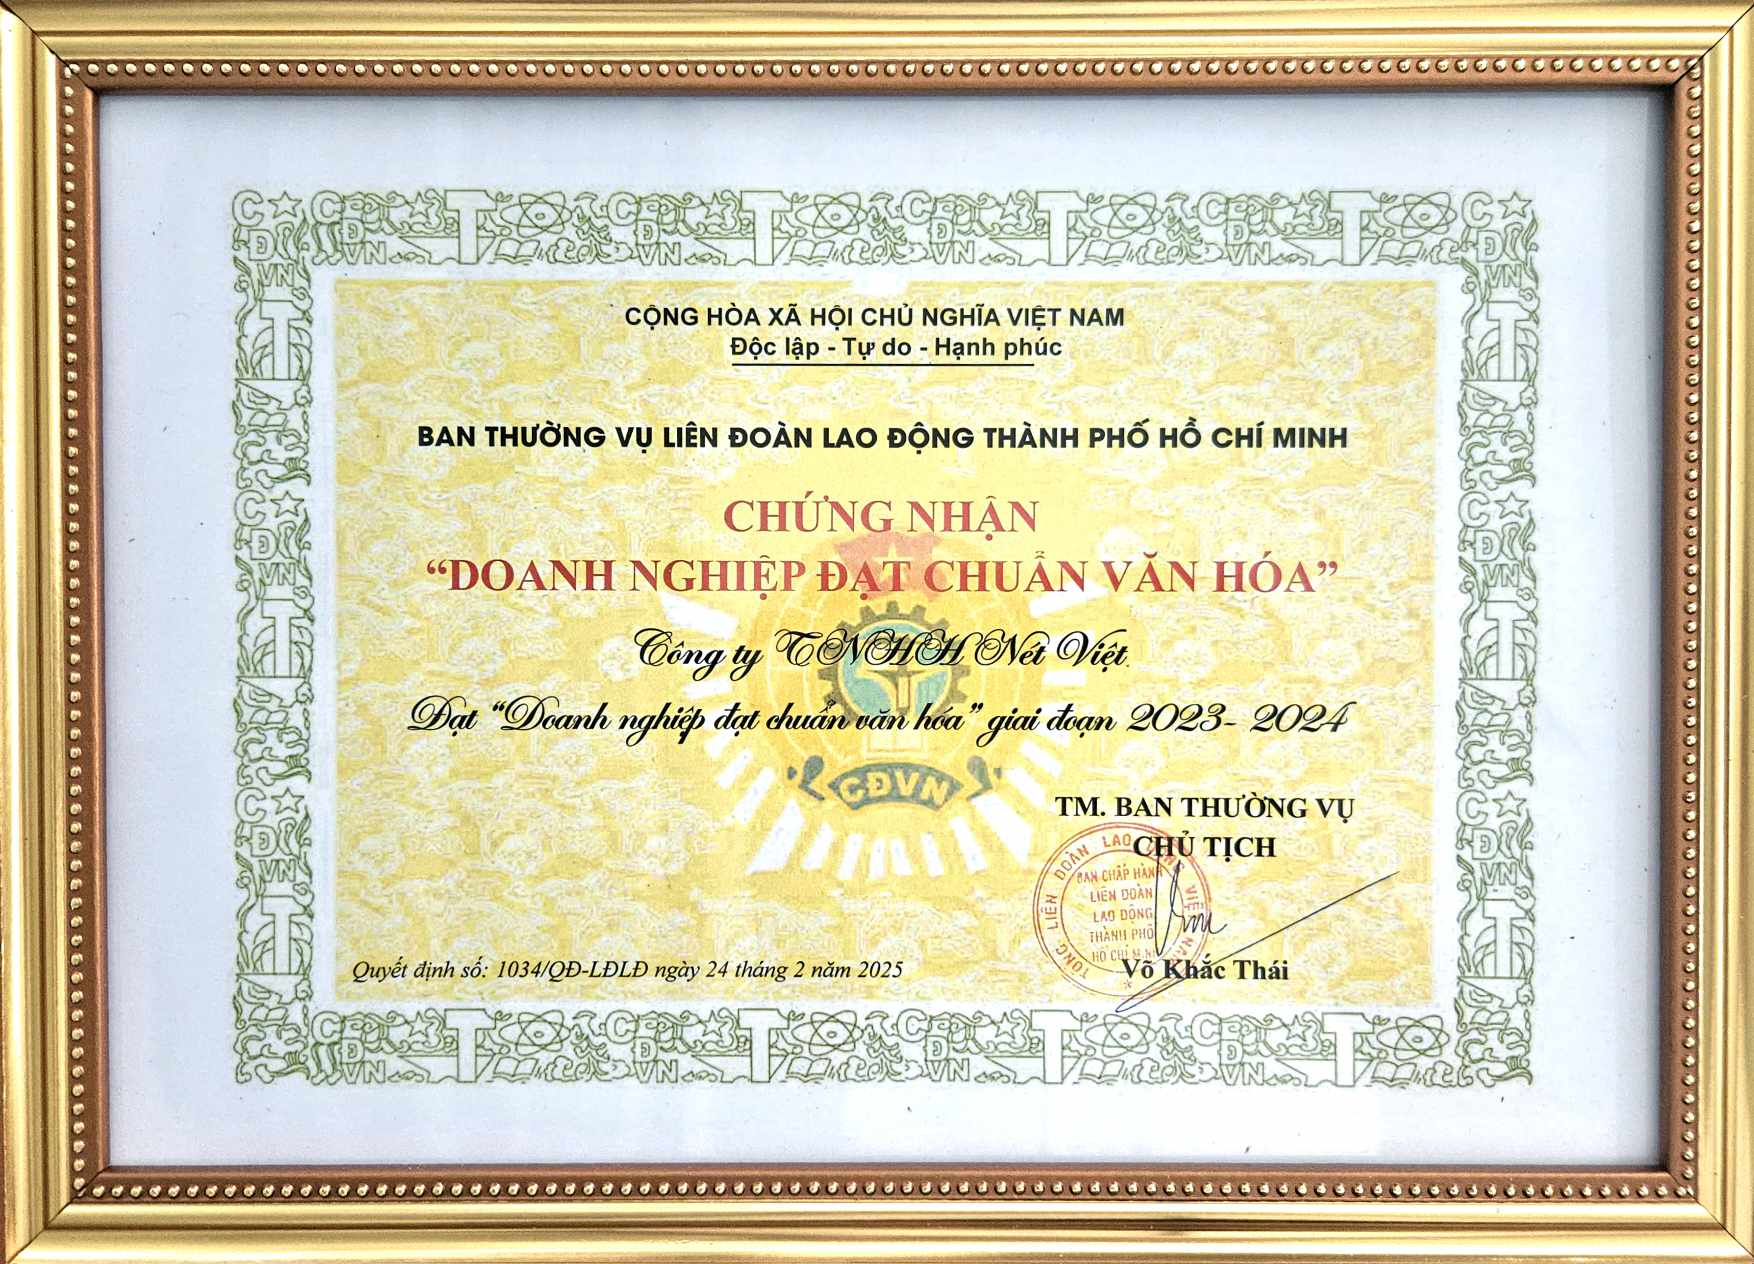 CỘNG HÒA XÃ HỘI CHỦ NGHĨA VIỆT NAM
Độc lập - Tự do - Hạnh phúc
BAN THƯỜNG VỤ LIÊN ĐOÀN LAO ĐỘNG THÀNH PHỐ HỒ CHÍ MINH
CHỨNG NHẬN
“DOANH NGHIỆP ĐẠT CHUẨN VĂN HÓA”
Công ty TNHH Nét Việt
Đạt “Doanh nghiệp đạt chuẩn văn hóa” giai đoạn 2023- 2024
CĐVN
TM. BAN THƯỜNG VỤ
CHỦ TỊCH
TỔNG LIÊN ĐOÀN LAO
BAN CHẤP HÀNH
LIÊN ĐOÀN
LAO ĐỘNG
THÀNH PHỐ
Võ Khắc Thái
Quyết định số: 1034/QĐ-LĐLĐ ngày 24 tháng 2 năm 2025